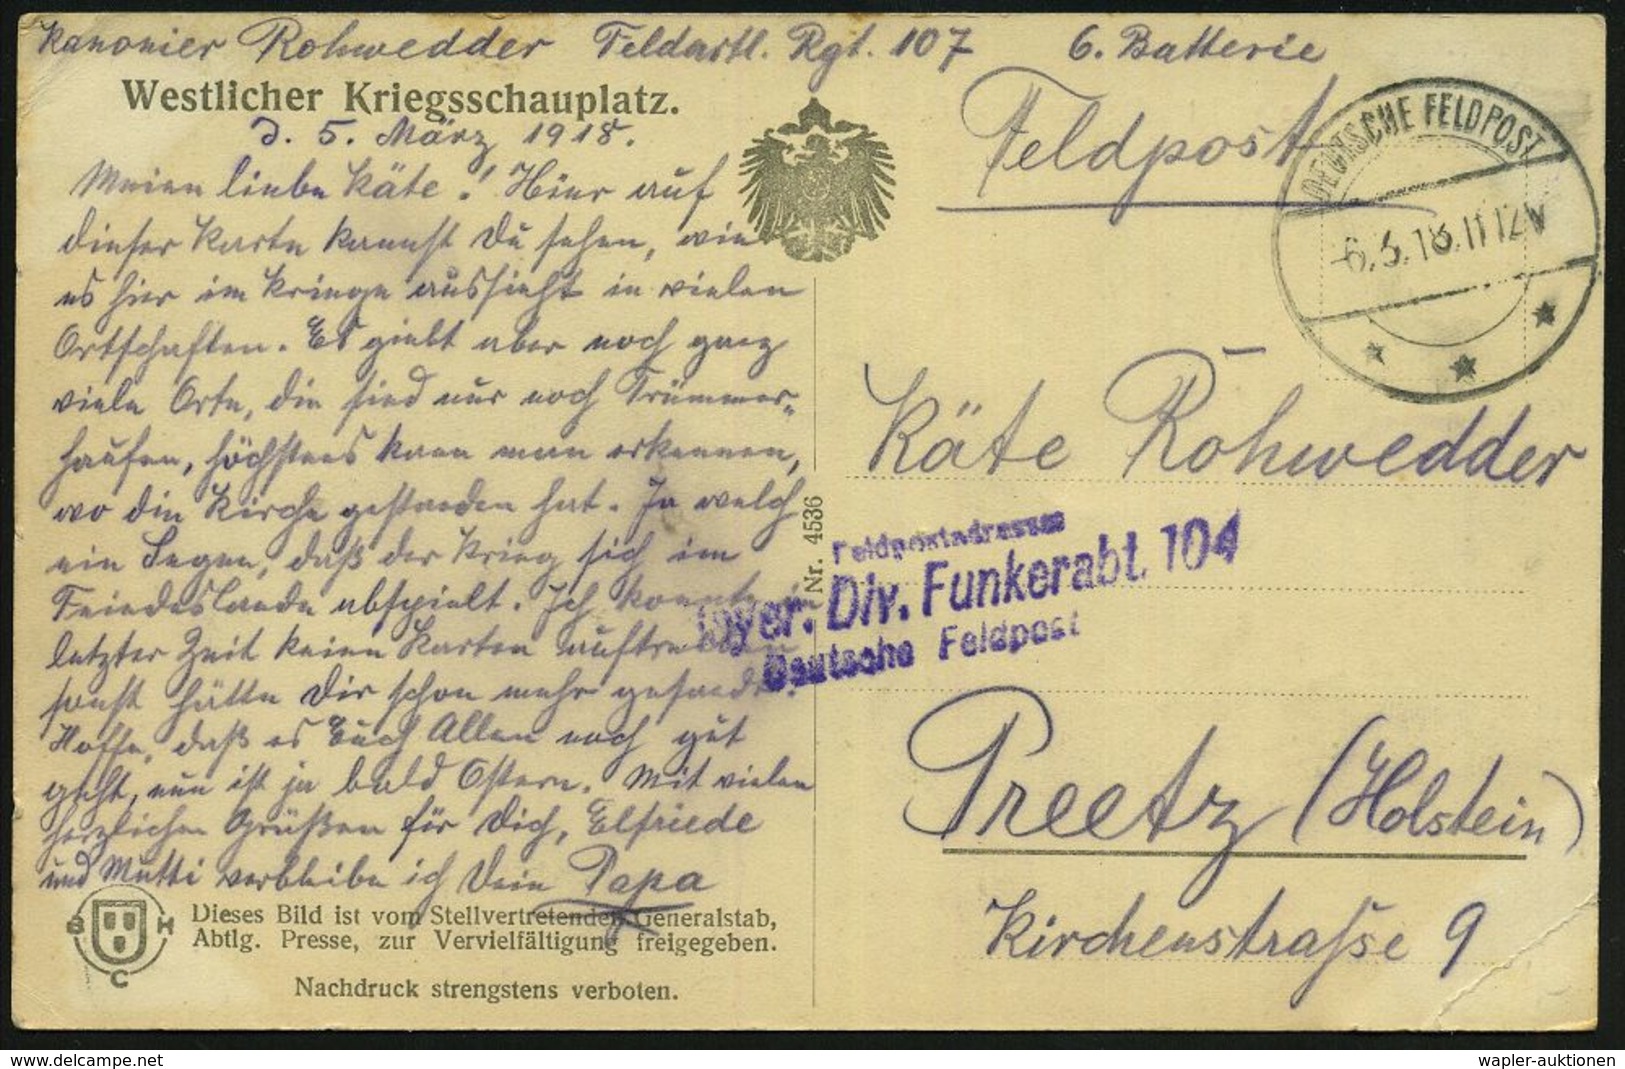 Kanonier Rohwedder Feldartl. Rgt. 107 6. Batterie
Westlicher Kriegsschauplatz.
d. 5. März 1918.
Meine liebe Käte! Hier auf
dieser Karte kannst Du sehen, wie
es hier im Kriege aussieht in vielen
Ortschaften. Es giebt aber noch ganz
viele Orte, die sind nur noch Trümmer-
haufen, höchstens kann man erkennen,
wo die Kirche gestanden hat. Ja welch
ein Segen, daß der Krieg sich im
Feindeslande abspielt. Ich konnte in
letzter Zeit keine Karten auftreiben
sonst hätte Dir schon mehr gesandt.
Hoffe, daß es Euch Allen noch gut
geht, nun ist ja bald Ostern. Mit vielen
herzlichen Grüßen für Dich, Elfriede
und Mutti verbleibe ich Dein Papa
B H C
Dieses Bild ist vom Stellvertretenden Generalstab,
Abtlg. Presse, zur Vervielfältigung freigegeben.
Nachdruck strengstens verboten.
Nr. 4536
Feldpost
DEUTSCHE FELDPOST
-6.3.18.11 12V
Käte Rohwedder
Feldpostadresse
Bayer. Div. Funkerabt. 104
Deutsche Feldpost
Preetz (Holstein)
Kirchenstrasse 9
wapler-auktionen